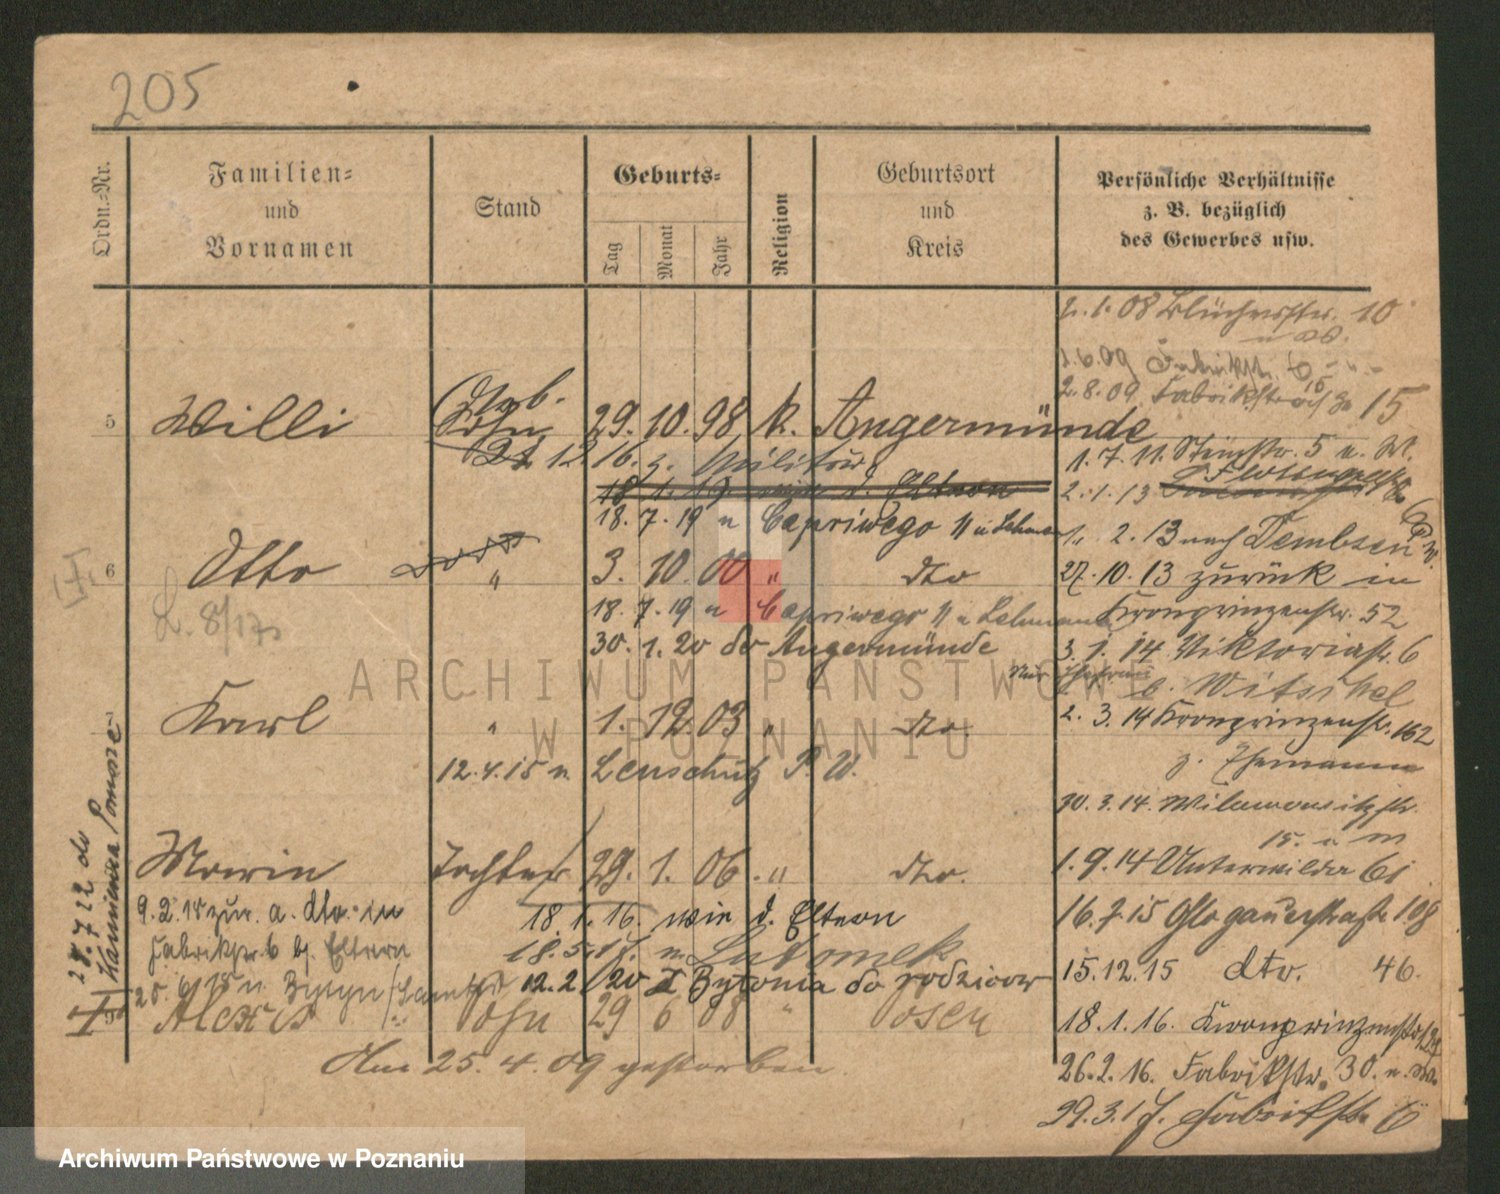 205
Ordn.-Nr.
Familien- und Vornamen
Stand
Geburts-
Tag
Monat
Jahr
Religion
Geburtsort und Kreis
Persönliche Verhältnisse z. B. bezüglich des Gewerbes usw.
2.1.08 Blücherstr. 10
1.6.09 Fabrikstr. 6
2.8.09 Fabrikstr. 15
5 Willi Sohn 29. 10. 98 k. Angermünde
16. z. Militär
1.7.11. 5 u. W.
18. 1. 19 d. Eltern
2.1.13
18.7.19 n Capriweg 11
2.13 nach Dembsen
6 Otto " 3. 10. 00 " dto
27.10.13 zurück in
L. 8/17
18.7.19 n Capriweg 11 u Lehmann
Kronprinzenstr. 52
30.1.20 Angermünde
3.1.14 Viktoriastr. 6
b. Witschel
Karl " 1. 12. 03 " dto.
2.3.14 Kronprinzenstr. 162
12.4.15 n. P. W.
z. Ehemann
30.3.14. Wilamowitzstr.
15. u m
Marie Tochter 29. 1. 06 " dto.
1.9.14 Unterwilda 61
9.2.15 zur. a. dto. in
18.1.16. wie d. Eltern
16.2.15 Glogauerstraße 108
Fabrikstr. 6 bj. Eltern
18.5.17. n.
12.2.20 z Bytonia do rodziców
15.12.15 dto. 46.
28.7.22 do
Kamienica Pomorze
Alexis Sohn 29 6 08 " Posen
18.1.16. Kronprinzenstr.
Am 25.4.09 gestorben.
26.2.16. Fabrikstr. 30.
29.3.17. Fabrikstr. 6
ARCHIWUM PAŃSTWOWE
W POZNANIU
Archiwum Państwowe w Poznaniu